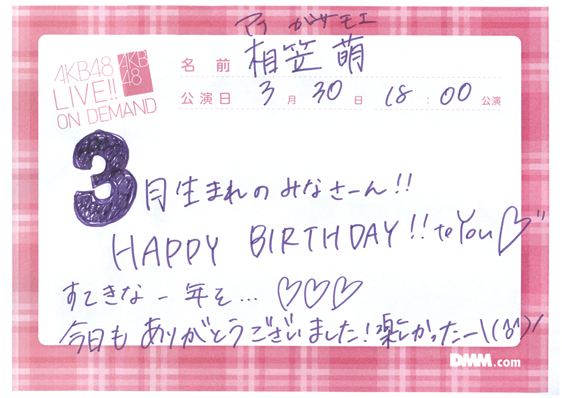 アイ がサモエ
AKB48
LIVE!!
ON DEMAND
AKB
48
名前 相笠 萌
公演日 3月30日 18:00公演
3月生まれのみなさーん!!
HAPPY BIRTHDAY!! to You♡"
すてきな一年を… ♡♡♡
今日もありがとうございました!楽しかったー\(
)/
DMM.com